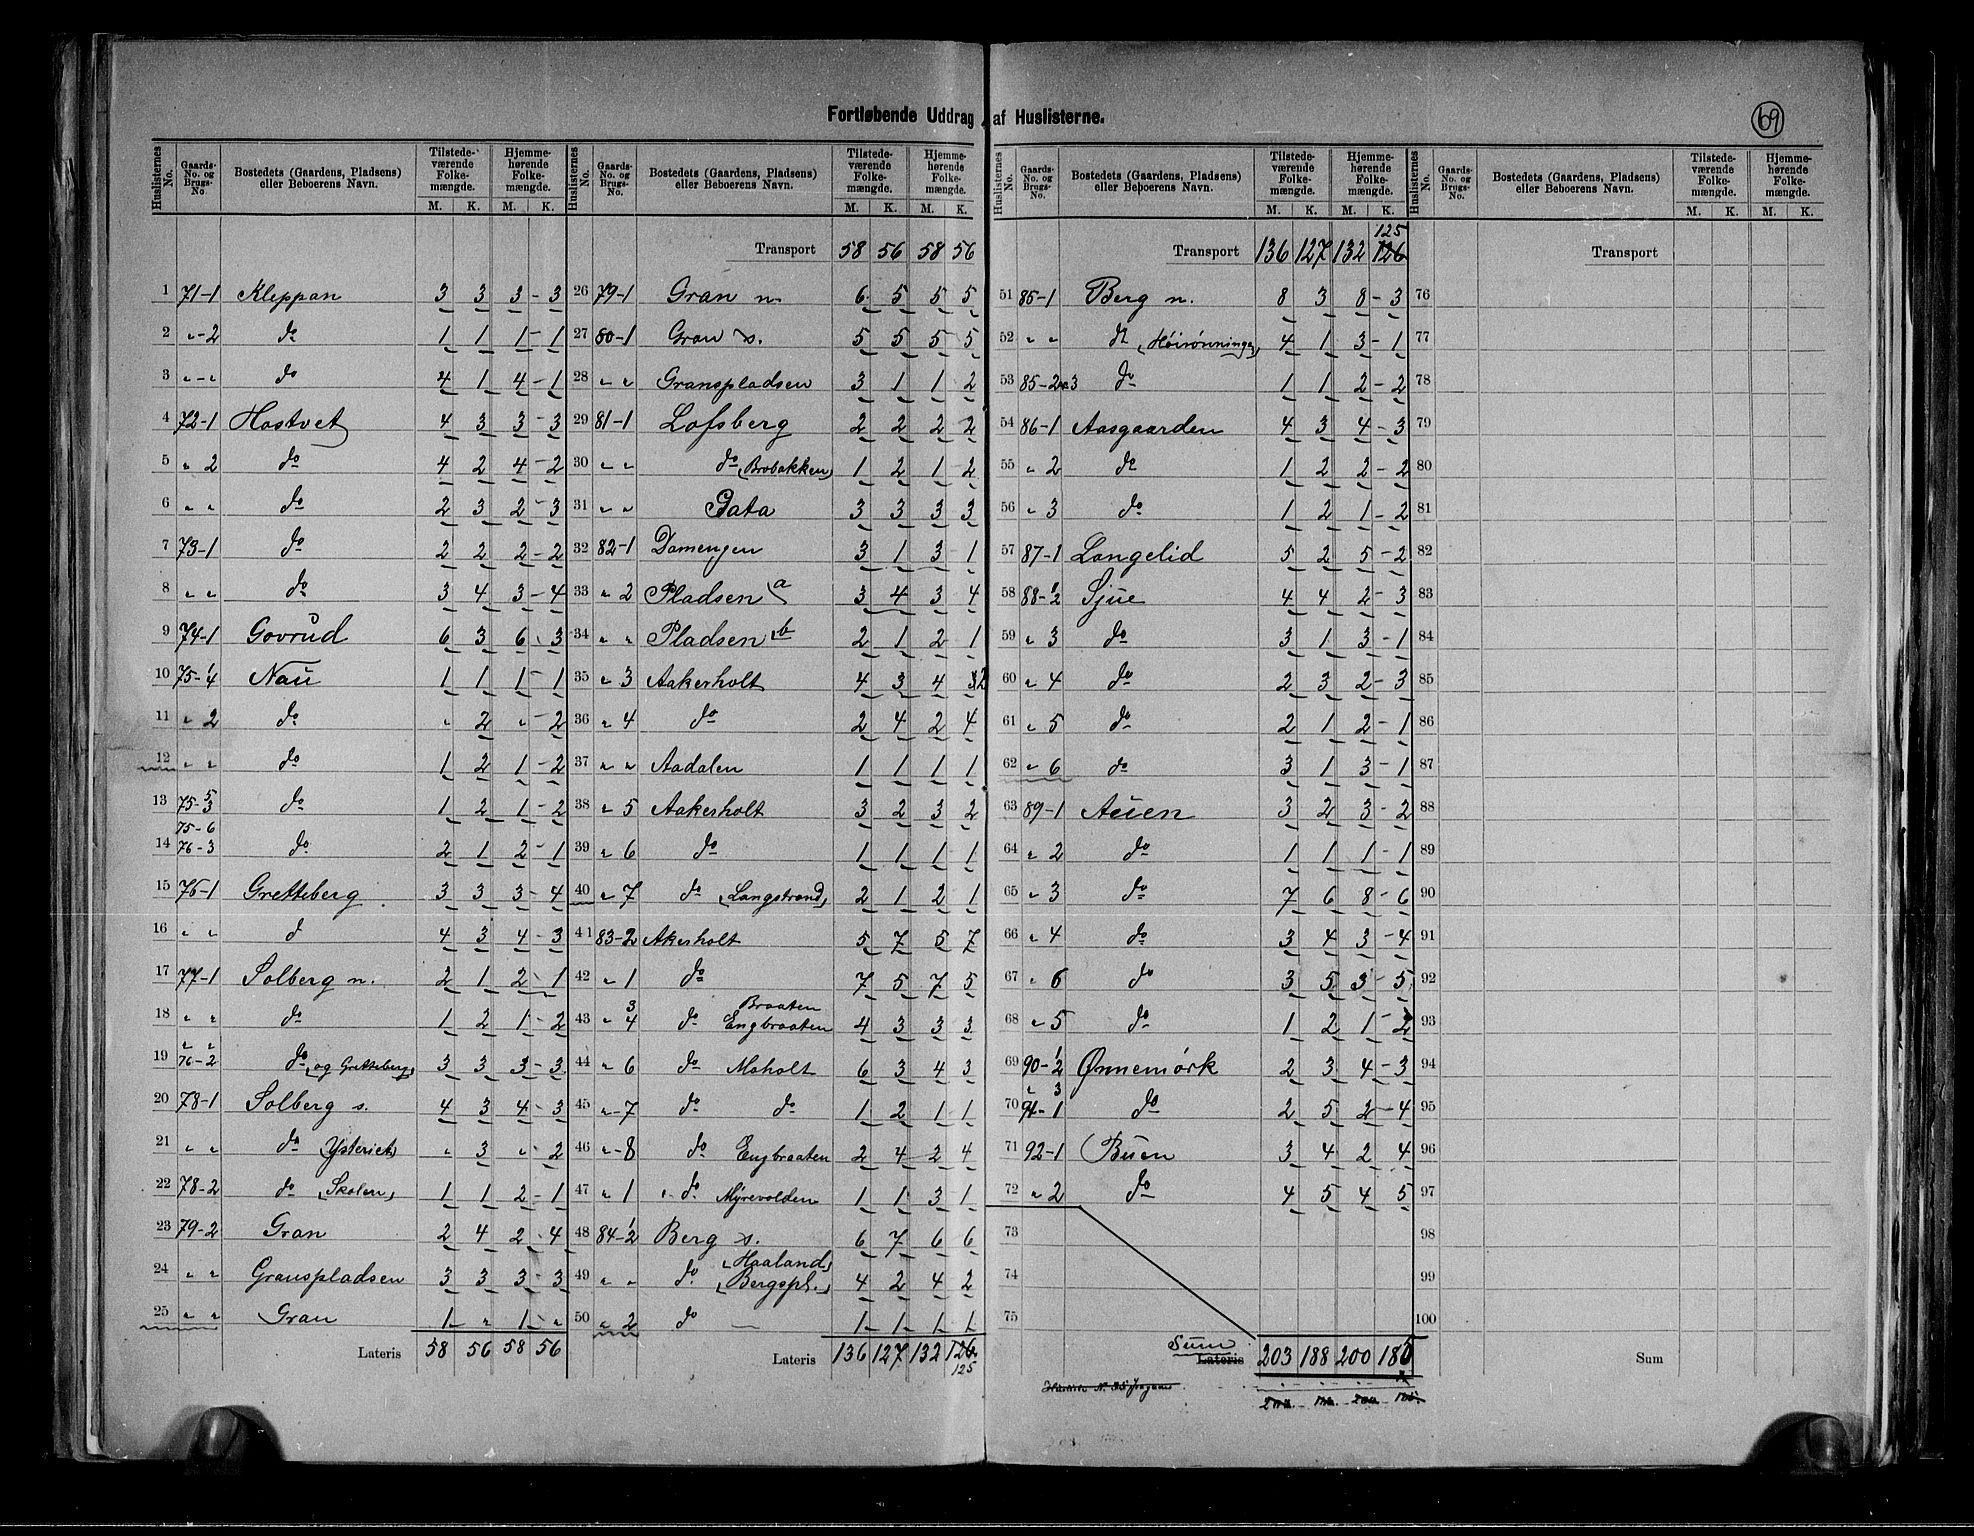 Fortløbende Uddrag af Huslisterne.
69
Huslisternes No. Gaards-No. og Brugs-No. Bostedets (Gaardens, Pladsens) eller Beboerens Navn. Tilstedeværende Folkemængde. M. K. Hjemmehørende Folkemængde. M. K.
1 71-1 Kleppan 3 3 3 - 3
2 „-2 do 1 1 1 - 1
3 „-„ do 4 1 4 - 1
4 72-1 Hostvet 4 3 3 - 3
5 „ 2 do 4 2 4 - 2
6 „ „ do 2 3 2 - 3
7 73-1 do 2 2 2 - 2
8 „ „ do 3 4 3 - 4
9 74-1 Govrud 6 3 6 - 3
10 75-1/4 Nau 1 1 1 - 1
11 „ 2 do „ 2 „ - 2
12 „ „ do 1 2 1 - 2
13 75-5/3 do 1 2 1 - 2
14 75-6 76-3 do 2 1 2 - 1
15 76-1 Gretteberg 3 3 3 - 4
16 „ „ d 4 3 4 - 3
17 77-1 Solberg n. 2 1 2 - 1
18 „ „ do 1 2 1 - 2
19 „ „ 76-2 do (og Gretteberg) 3 3 3 - 3
20 78-1 Solberg s. 4 3 4 - 3
21 „ „ do (Ysteriet) „ 3 „ - 2
22 78-2 do (Skolen) 1 1 2 - 1
23 79-2 Gran 2 4 2 - 4
24 „ „ Granspladsen 3 3 3 - 3
25 „ „ Gran 1 „ 1 „
Lateris 58 56 58 56
Transport 58 56 58 56
26 79-1 Gran n. 6 5 5 5
27 80-1 Gran s. 5 5 5 5
28 „ „ Granspladsen 3 1 1 2
29 81-1 Lofsberg 2 2 2 2
30 „ „ do (Brobakken) 1 2 1 2
31 „ „ Gata 3 3 3 3
32 82-1 Damengen 3 1 3 1
33 „ 2 Pladsen a 3 4 3 4
34 „ „ Pladsen b 2 1 2 1
35 „ 3 Aakerholt 4 3 4 3 2
36 „ 4 do 2 4 2 4
37 „ „ Aadalen 1 1 1 1
38 „ 5 Aakerholt 3 2 3 2
39 „ 6 do 1 1 1 1
40 „-7 do (Langstrand) 2 1 2 1
41 83-2 Akerholt 5 7 5 7
42 „ 1 do 7 5 7 5
43 „ 3/4 do Braaten Engbraaten 4 3 3 3
44 „ 6 do Moholt 6 3 4 3
45 „-7 do do 1 2 1 1
46 „-8 do Engbraaten 2 4 2 4
47 „ 1 do Myrevolden 1 1 3 1
48 84-1/2 Berg s. 6 7 6 6
49 „ „ do (Haaland) (Bergspl.) 4 2 4 2
50 „ 2 do — 1 1 1 1
Lateris 136 127 132 126 125
Huslisternes No. Gaards-No. og Brugs-No. Bostedets (Gaardens, Pladsens) eller Beboerens Navn. Tilstedeværende Folkemængde. M. K. Hjemmehørende Folkemængde. M. K.
Transport 136 127 132 126 125
51 85-1 Berg n. 8 3 8 - 3
52 „ „ do (Høirønningen) 4 1 3 - 1
53 85-2 3 do 1 1 2 - 2
54 86-1 Aasgaarden 4 3 4 - 3
55 „ 2 do 1 2 2 - 2
56 „ 3 do 1 2 1 - 2
57 87-1 Langelid 5 2 5 - 2
58 88-1/2 Sjue 4 4 2 - 3
59 „ 3 do 3 1 3 - 1
60 „ 4 do 2 3 2 - 3
61 „ 5 do 2 1 2 - 1
62 „ 6 do 3 1 3 - 1
63 89-1 Auen 3 2 3 - 2
64 „ 2 do 1 1 1 - 1
65 „ 3 do 7 6 8 - 6
66 „ 4 do 3 4 3 - 4
67 „ 6 do 3 5 3 - 5
68 „ 5 do 1 2 1 - 2
69 90-1/2 Ønnemørk 2 3 4 - 3
70 „ 3 91-1 do 2 5 2 - 4
71 92-1 Buen 3 4 2 4
72 „ 2 do 4 5 4 5
73
74
75
Sum Lateris 203 188 200 185
Transport
76
77
78
79
80
81
82
83
84
85
86
87
88
89
90
91
92
93
94
95
96
97
98
99
100
Sum